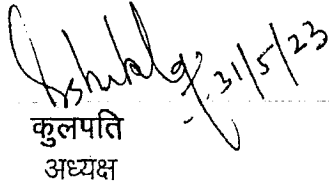 31/5/23
कुलपति
अध्यक्ष